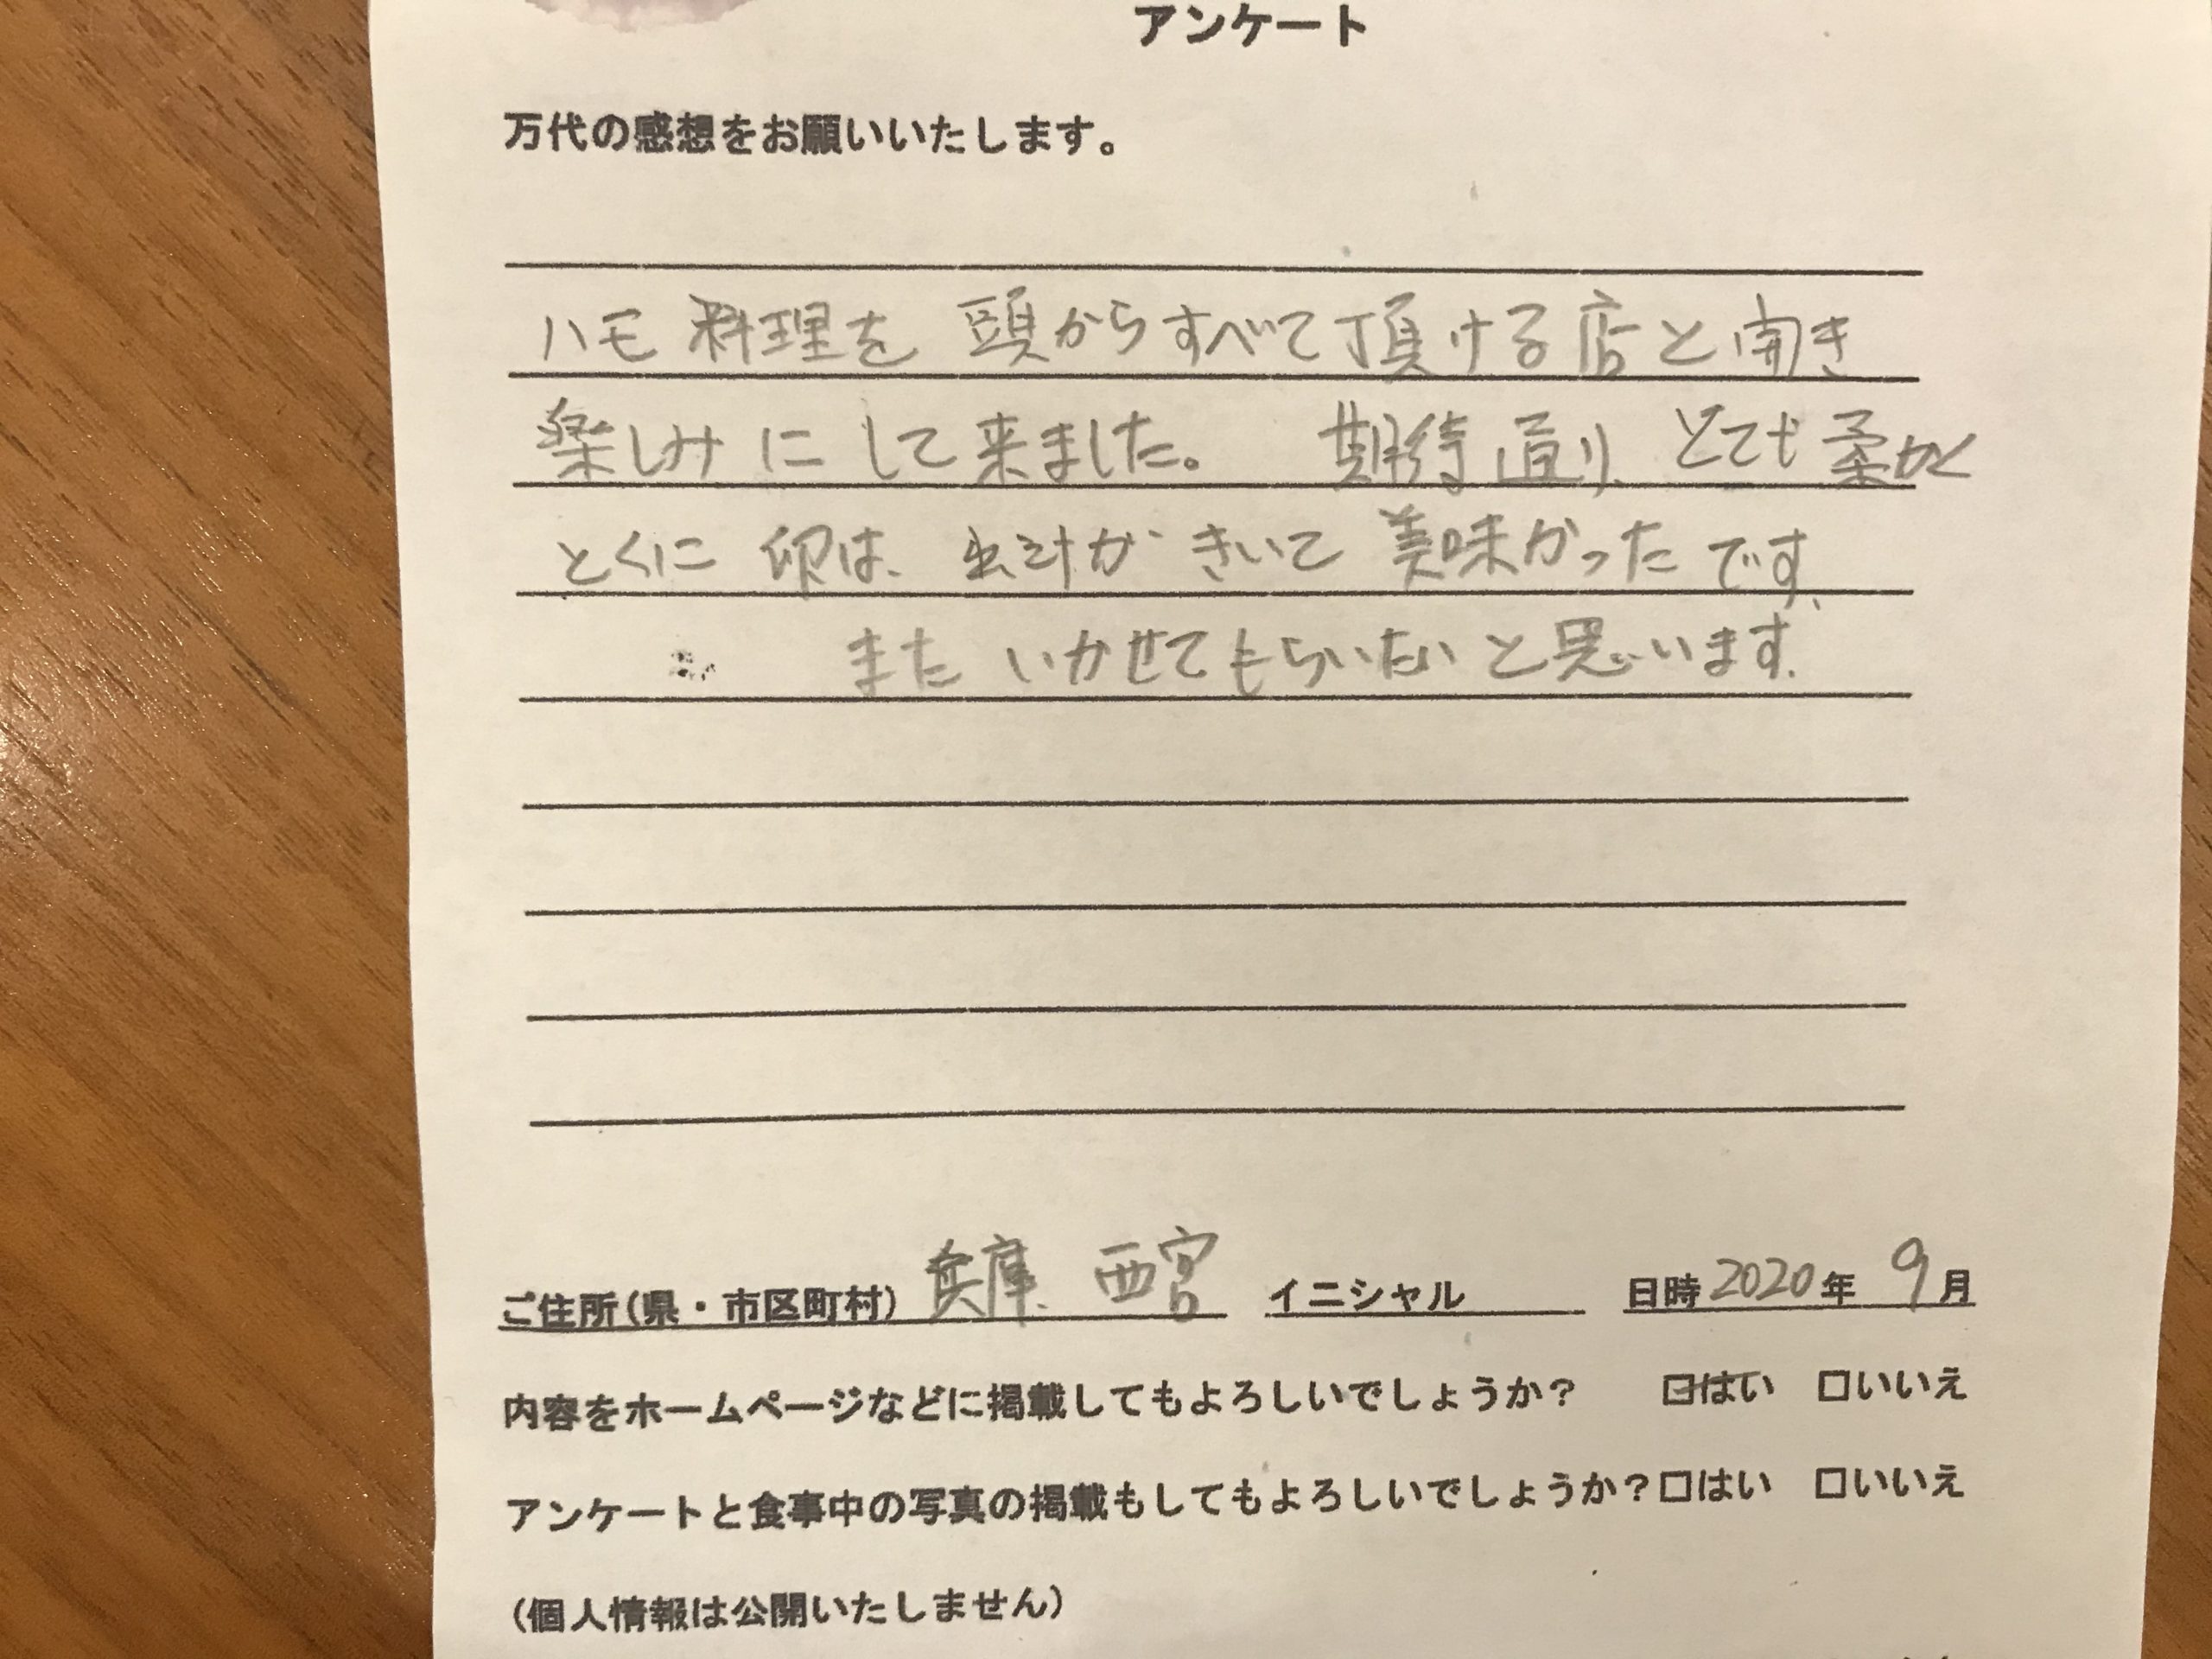 アンケート
万代の感想をお願いいたします。
ハモ料理を 頭からすべて頂ける店と聞き
楽しみにして来ました。 期待直り、とても柔かく
とくに 卵は、出汁が きいて 美味かったです、
また いかせてもらいたいと思います.
ご住所(県・市区町村) 兵庫、西宮 イニシャル 日時 2020年 9月
内容をホームページなどに掲載してもよろしいでしょうか? ☑はい □いいえ
アンケートと食事中の写真の掲載もしてもよろしいでしょうか?□はい □いいえ
(個人情報は公開いたしません)